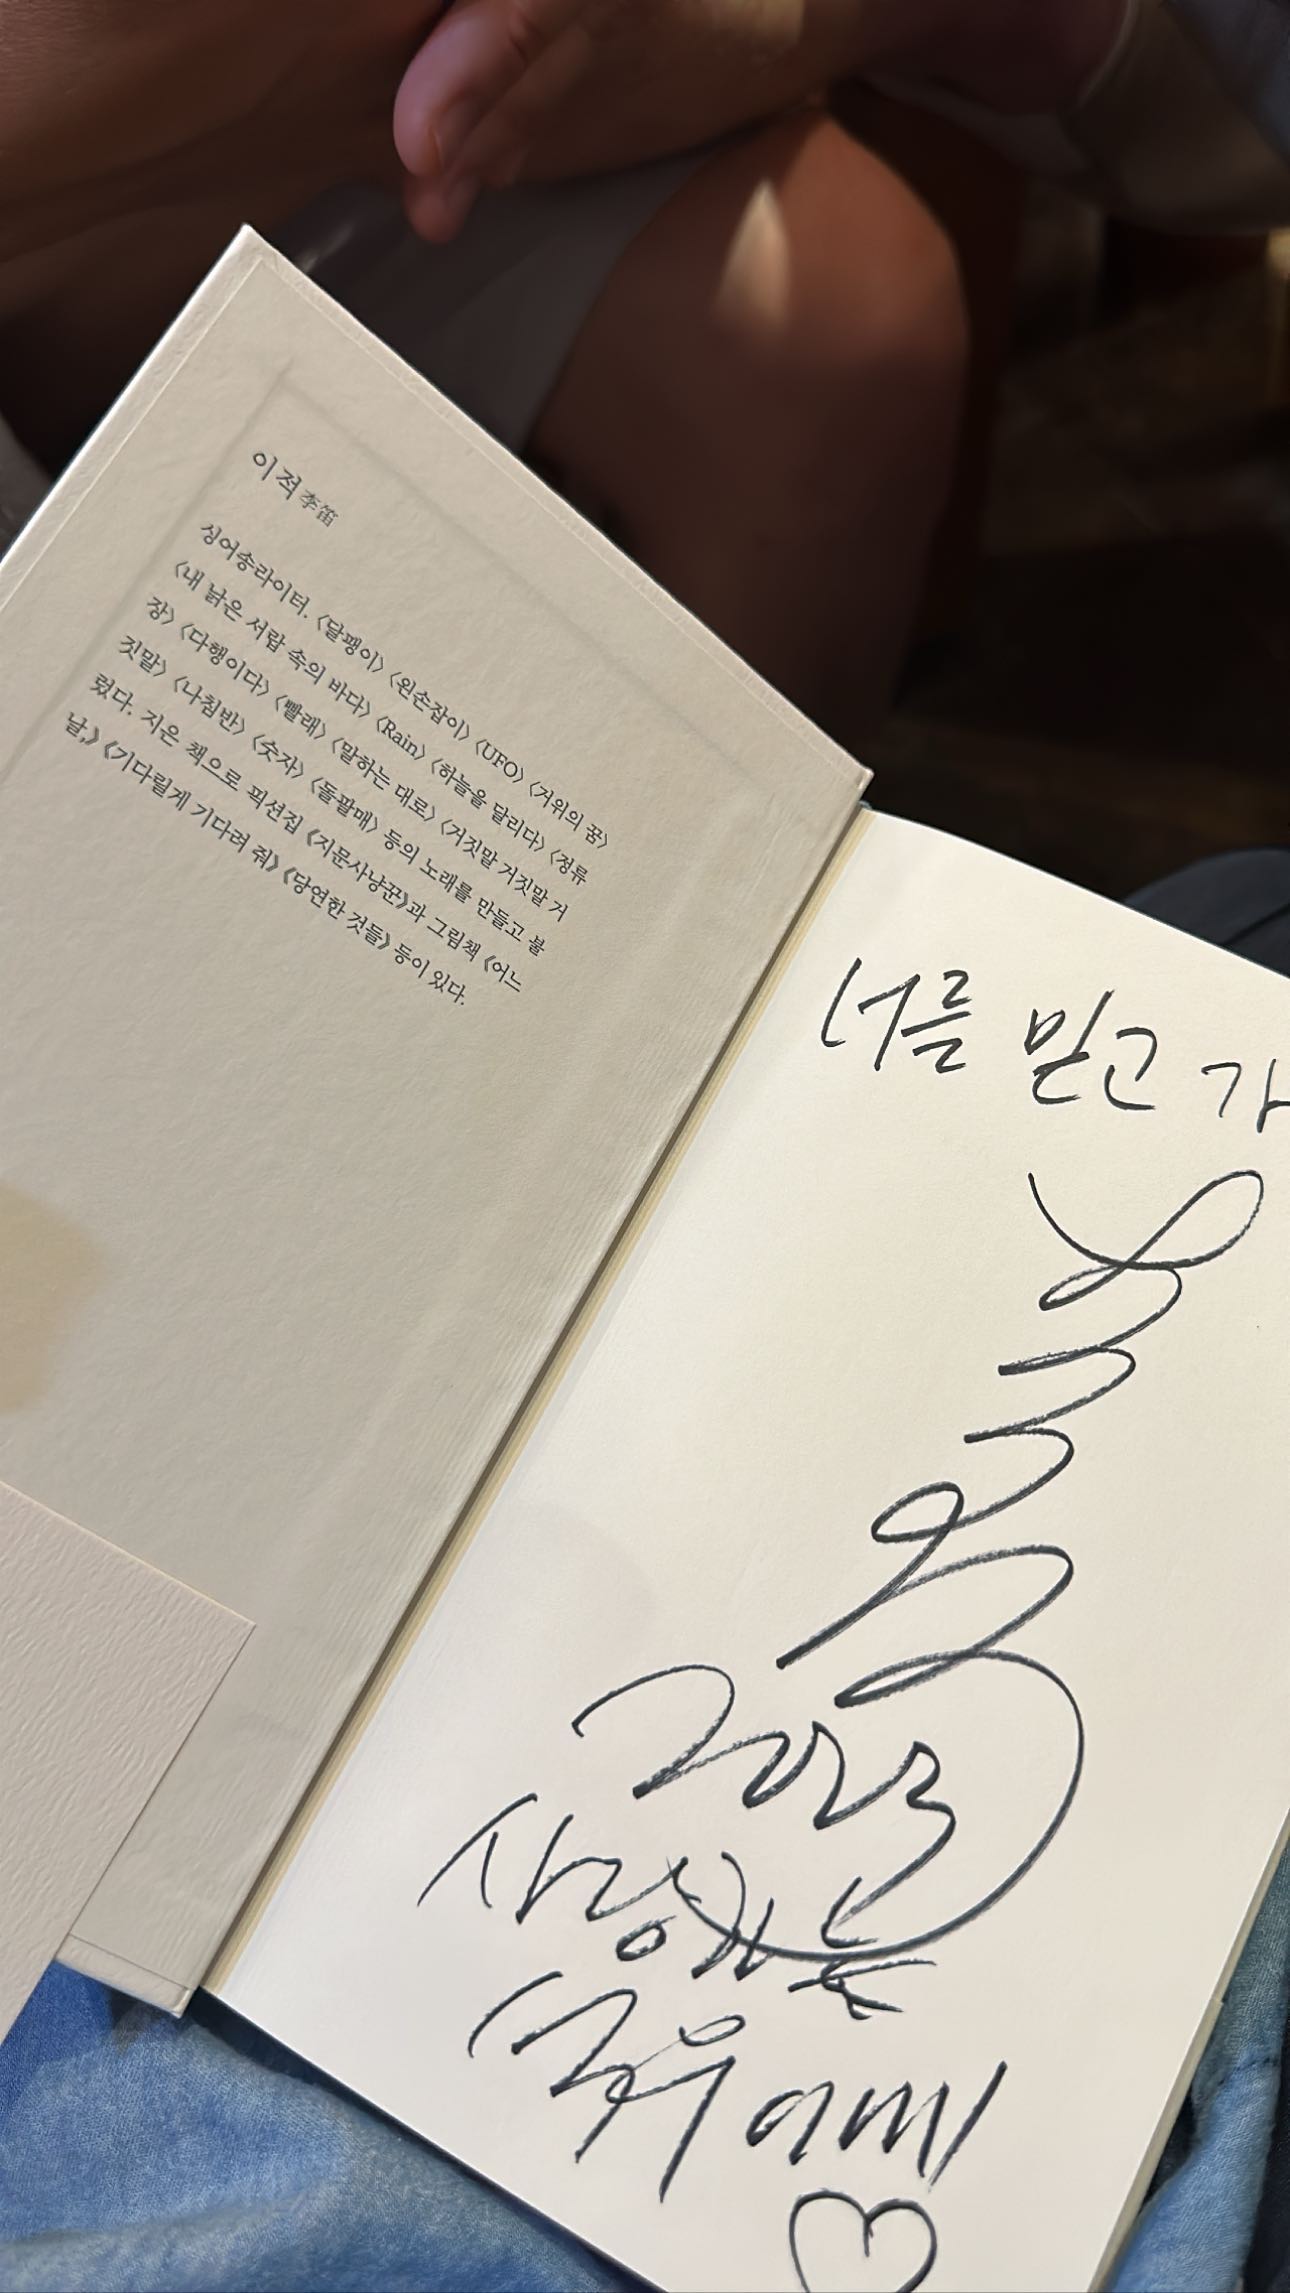 이적 李笛
싱어송라이터. 〈달팽이〉 〈왼손잡이〉 〈UFO〉 〈거위의 꿈〉
〈내 낡은 서랍 속의 바다〉 〈Rain〉 〈하늘을 달리다〉 〈정류
장〉 〈다행이다〉 〈빨래〉 〈말하는 대로〉 〈거짓말 거짓말 거
짓말〉 〈나침반〉 〈숫자〉 〈돌팔매〉 등의 노래를 만들고 불
렀다. 지은 책으로 픽션집 《지문사냥꾼》과 그림책 《어느
날,》 《기다릴게 기다려 줘》 《당연한 것들》 등이 있다.
너를 믿고 가
2023